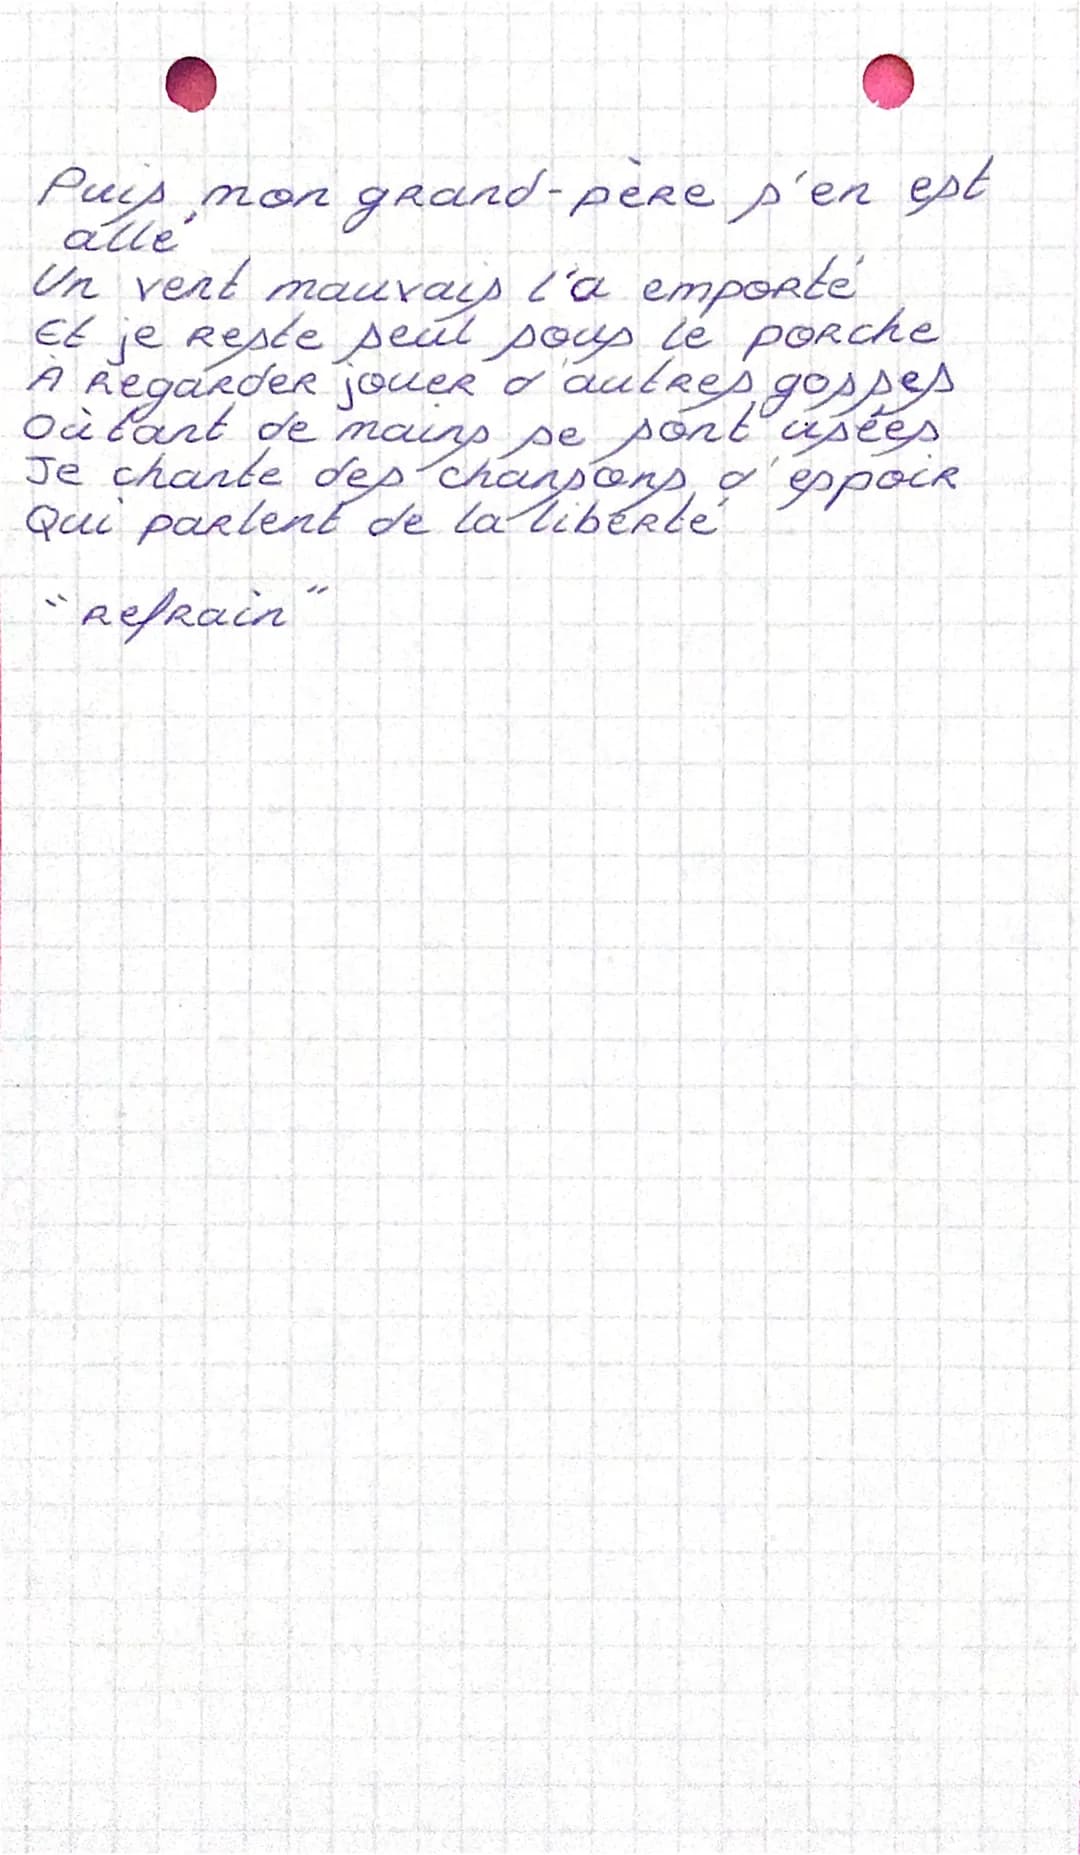 Puis mon grand-père s'en est
allé
Un vent mauvais l'a emporté
Et je reste seul sous le porche
A regarder jouer d'autres gosses
Où tant de mains se sont usées
Je chante des chansons d'espoir
Qui parlent de la liberté
"refrain"